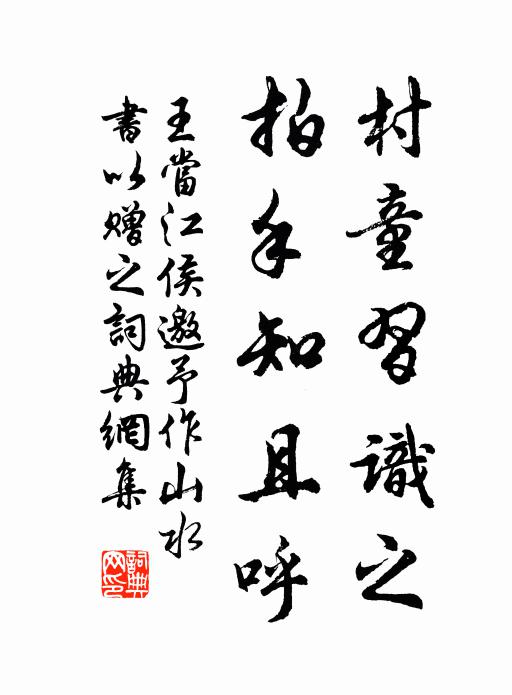 村童習識之
拍手知且呼
王當江侯邀予作山水
書以贈之詞典網集
詞典网印